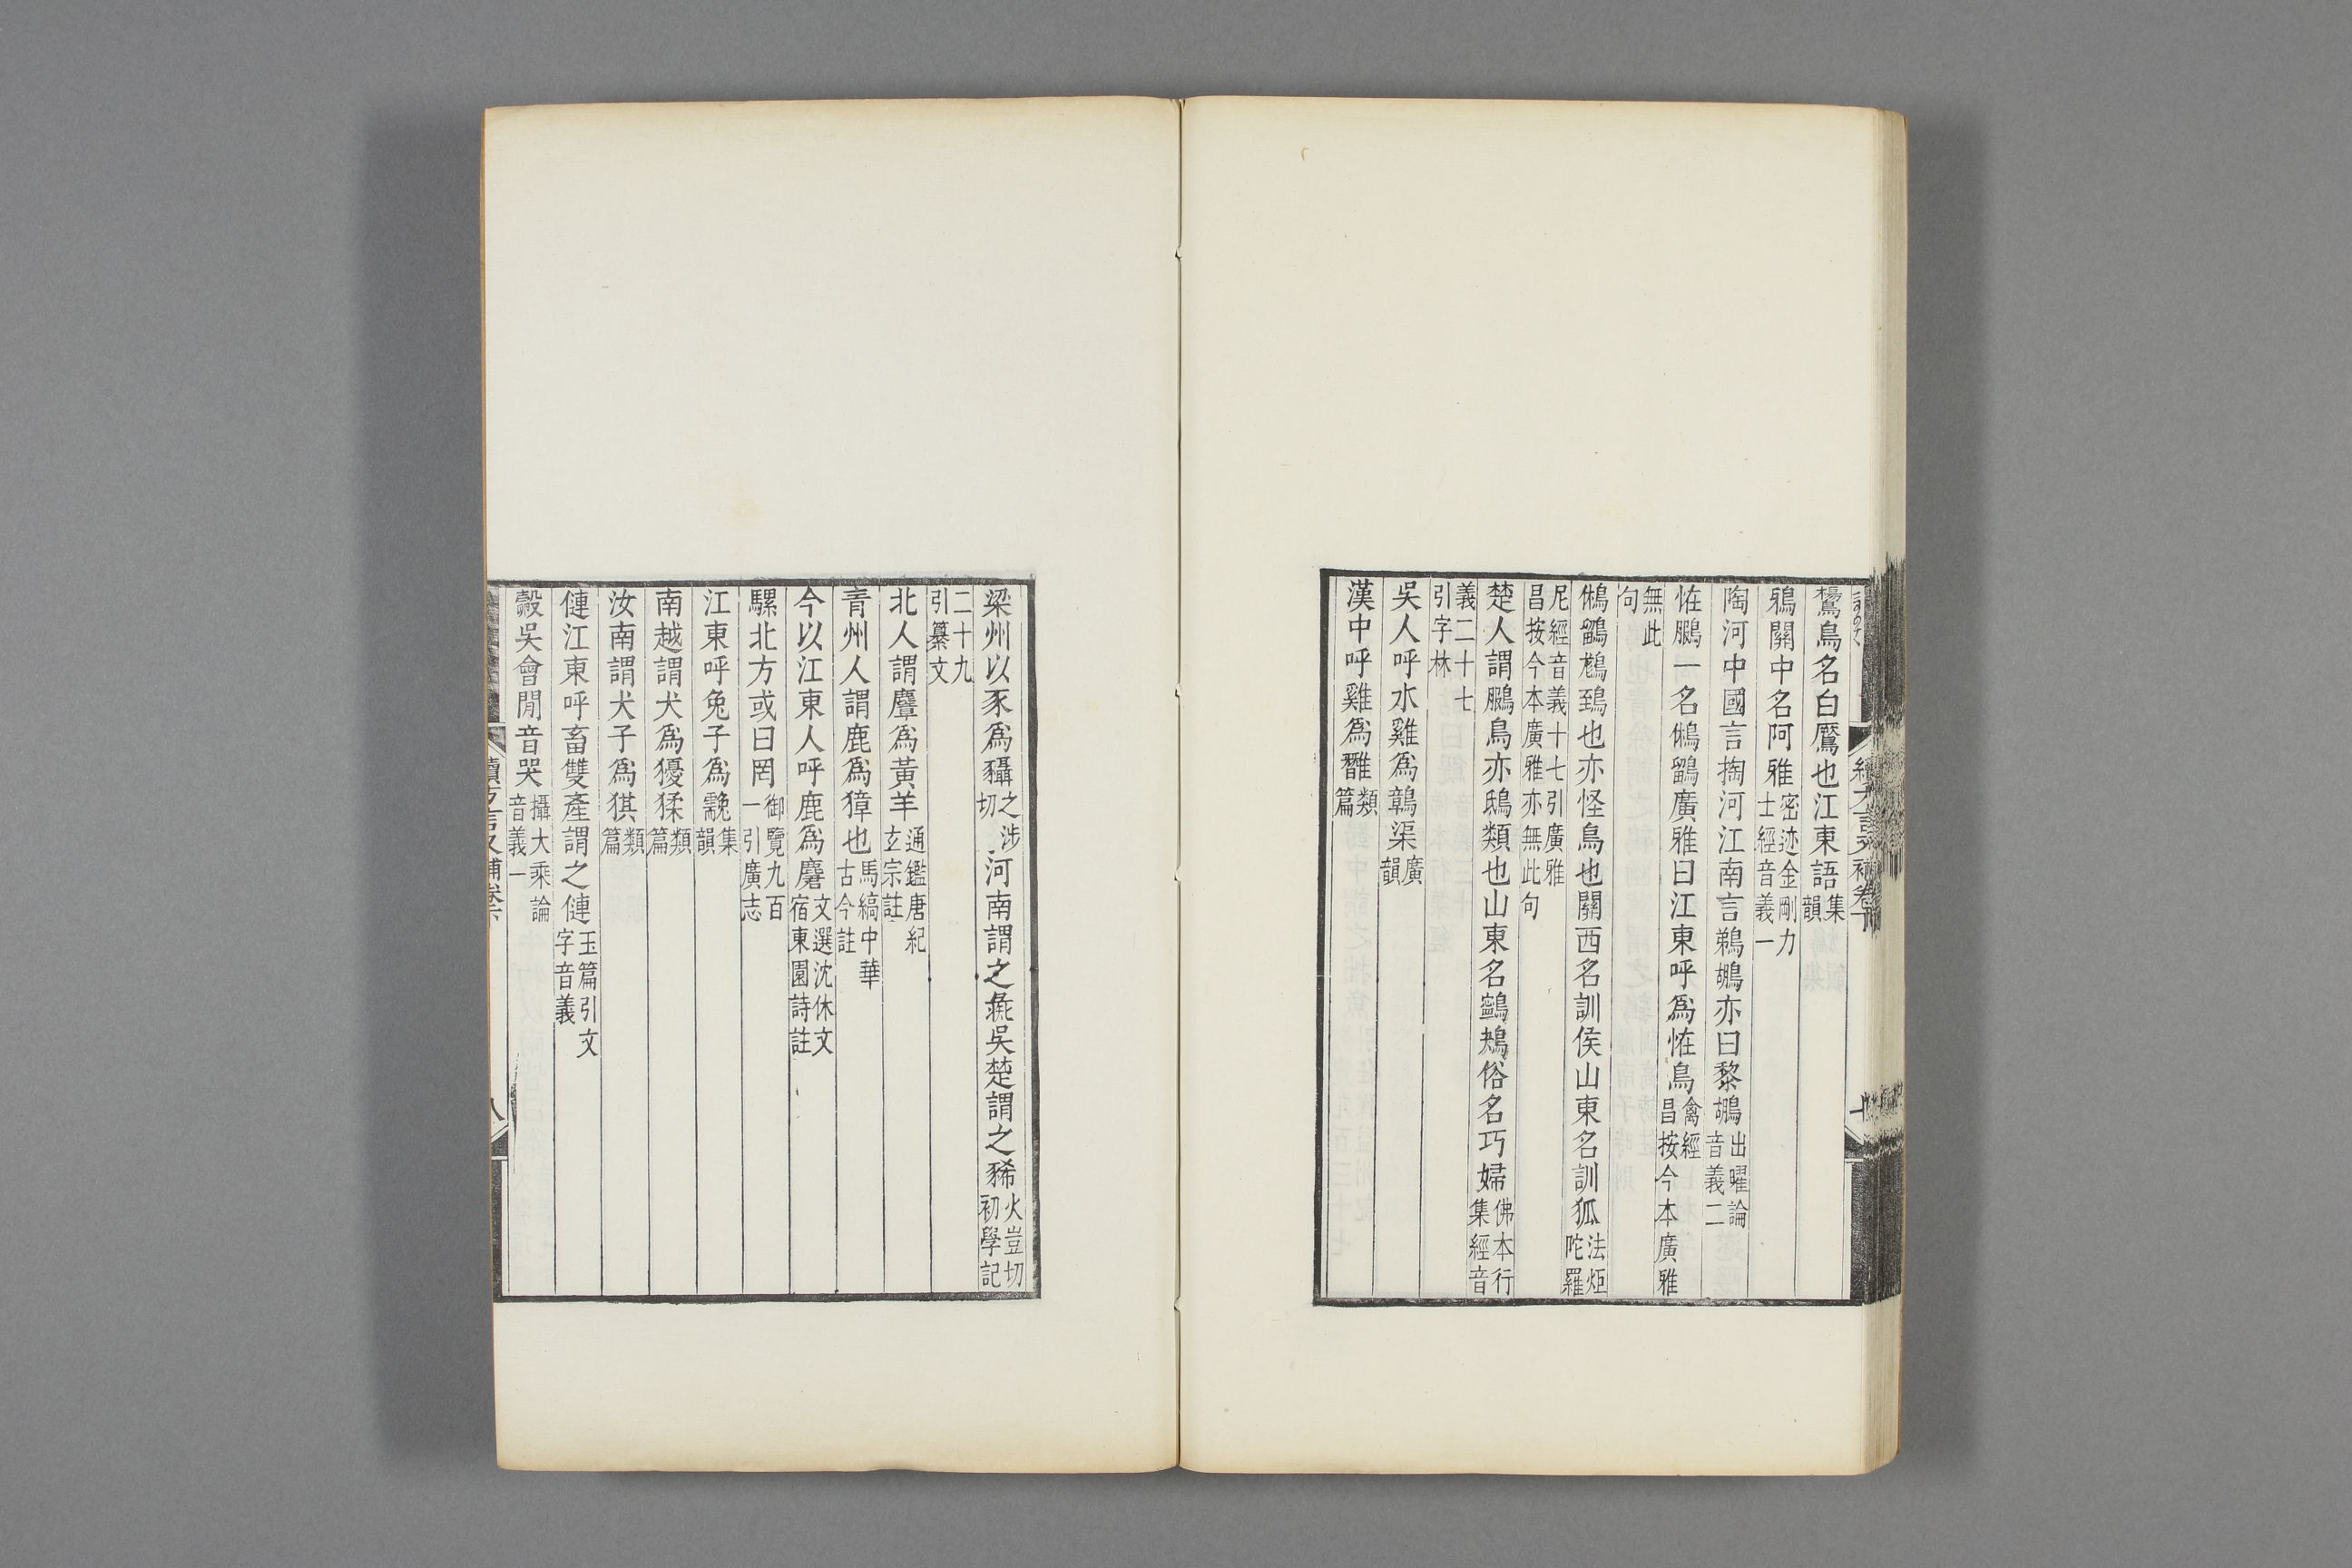 鸉鳥名白鷢也江東語集韻
鴉關中名阿雅密迹金剛力士經音義一
陶河中國言掏河江南言鵜鶘亦曰黎鶘出曜論音義二
恠鵩一名鵂鶹廣雅曰江東呼爲恠鳥禽經昌按今本廣雅
無此句
鵂鶹鵄也亦怪鳥也關西名訓侯山東名訓狐法炬陀羅
尼經音義十七引廣雅昌按今本廣雅亦無此句
楚人謂鵩鳥亦鴟類也山東名鸋鴂俗名巧婦佛本行集經音
義二十七引字林
吳人呼水雞爲鶤渠廣韻
漢中呼雞爲雂類篇
梁州以豕爲䝕之涉切河南謂之彘吳楚謂之豨火豈切初學記
二十九引纂文
北人謂麞爲黃羊通鑑唐紀玄宗註
青州人謂鹿爲獐也馬縞中華古今註
今以江東人呼鹿爲麏文選沈休文宿東園詩註
騾北方或曰罔御覽九百一引廣志
江東呼兔子爲㲬集韻
南越謂犬爲獿猱類篇
汝南謂犬子爲猉類篇
健江東呼畜雙產謂之健玉篇引文字音義
㲉吳會閒音哭攝大乘論音義一
續方言又補卷下
八